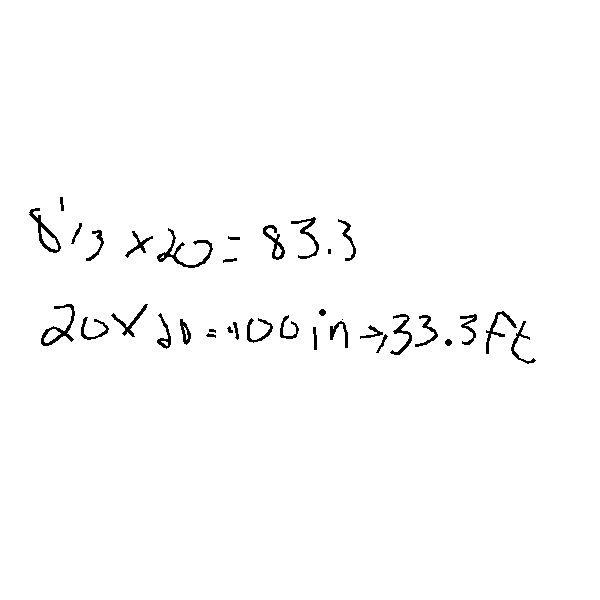 8 1/3 x 20 = 83.3
20 x 20 = 400 in → 33.3 ft